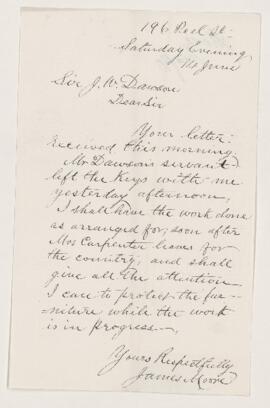 196 Peel St.
Saturday Evening
14 June
Sir J. W. Dawson
Dear Sir
Your letter
received this morning.
Mr Dawson's servant
left the keys with me
yesterday afternoon,
I shall have the work done
as arranged for, soon after
Mrs Carpenter leaves for
the country, and shall
give all the attention
I care to protect the fur-
niture while the work
is in progress.
Yours Respectfully
James Moore